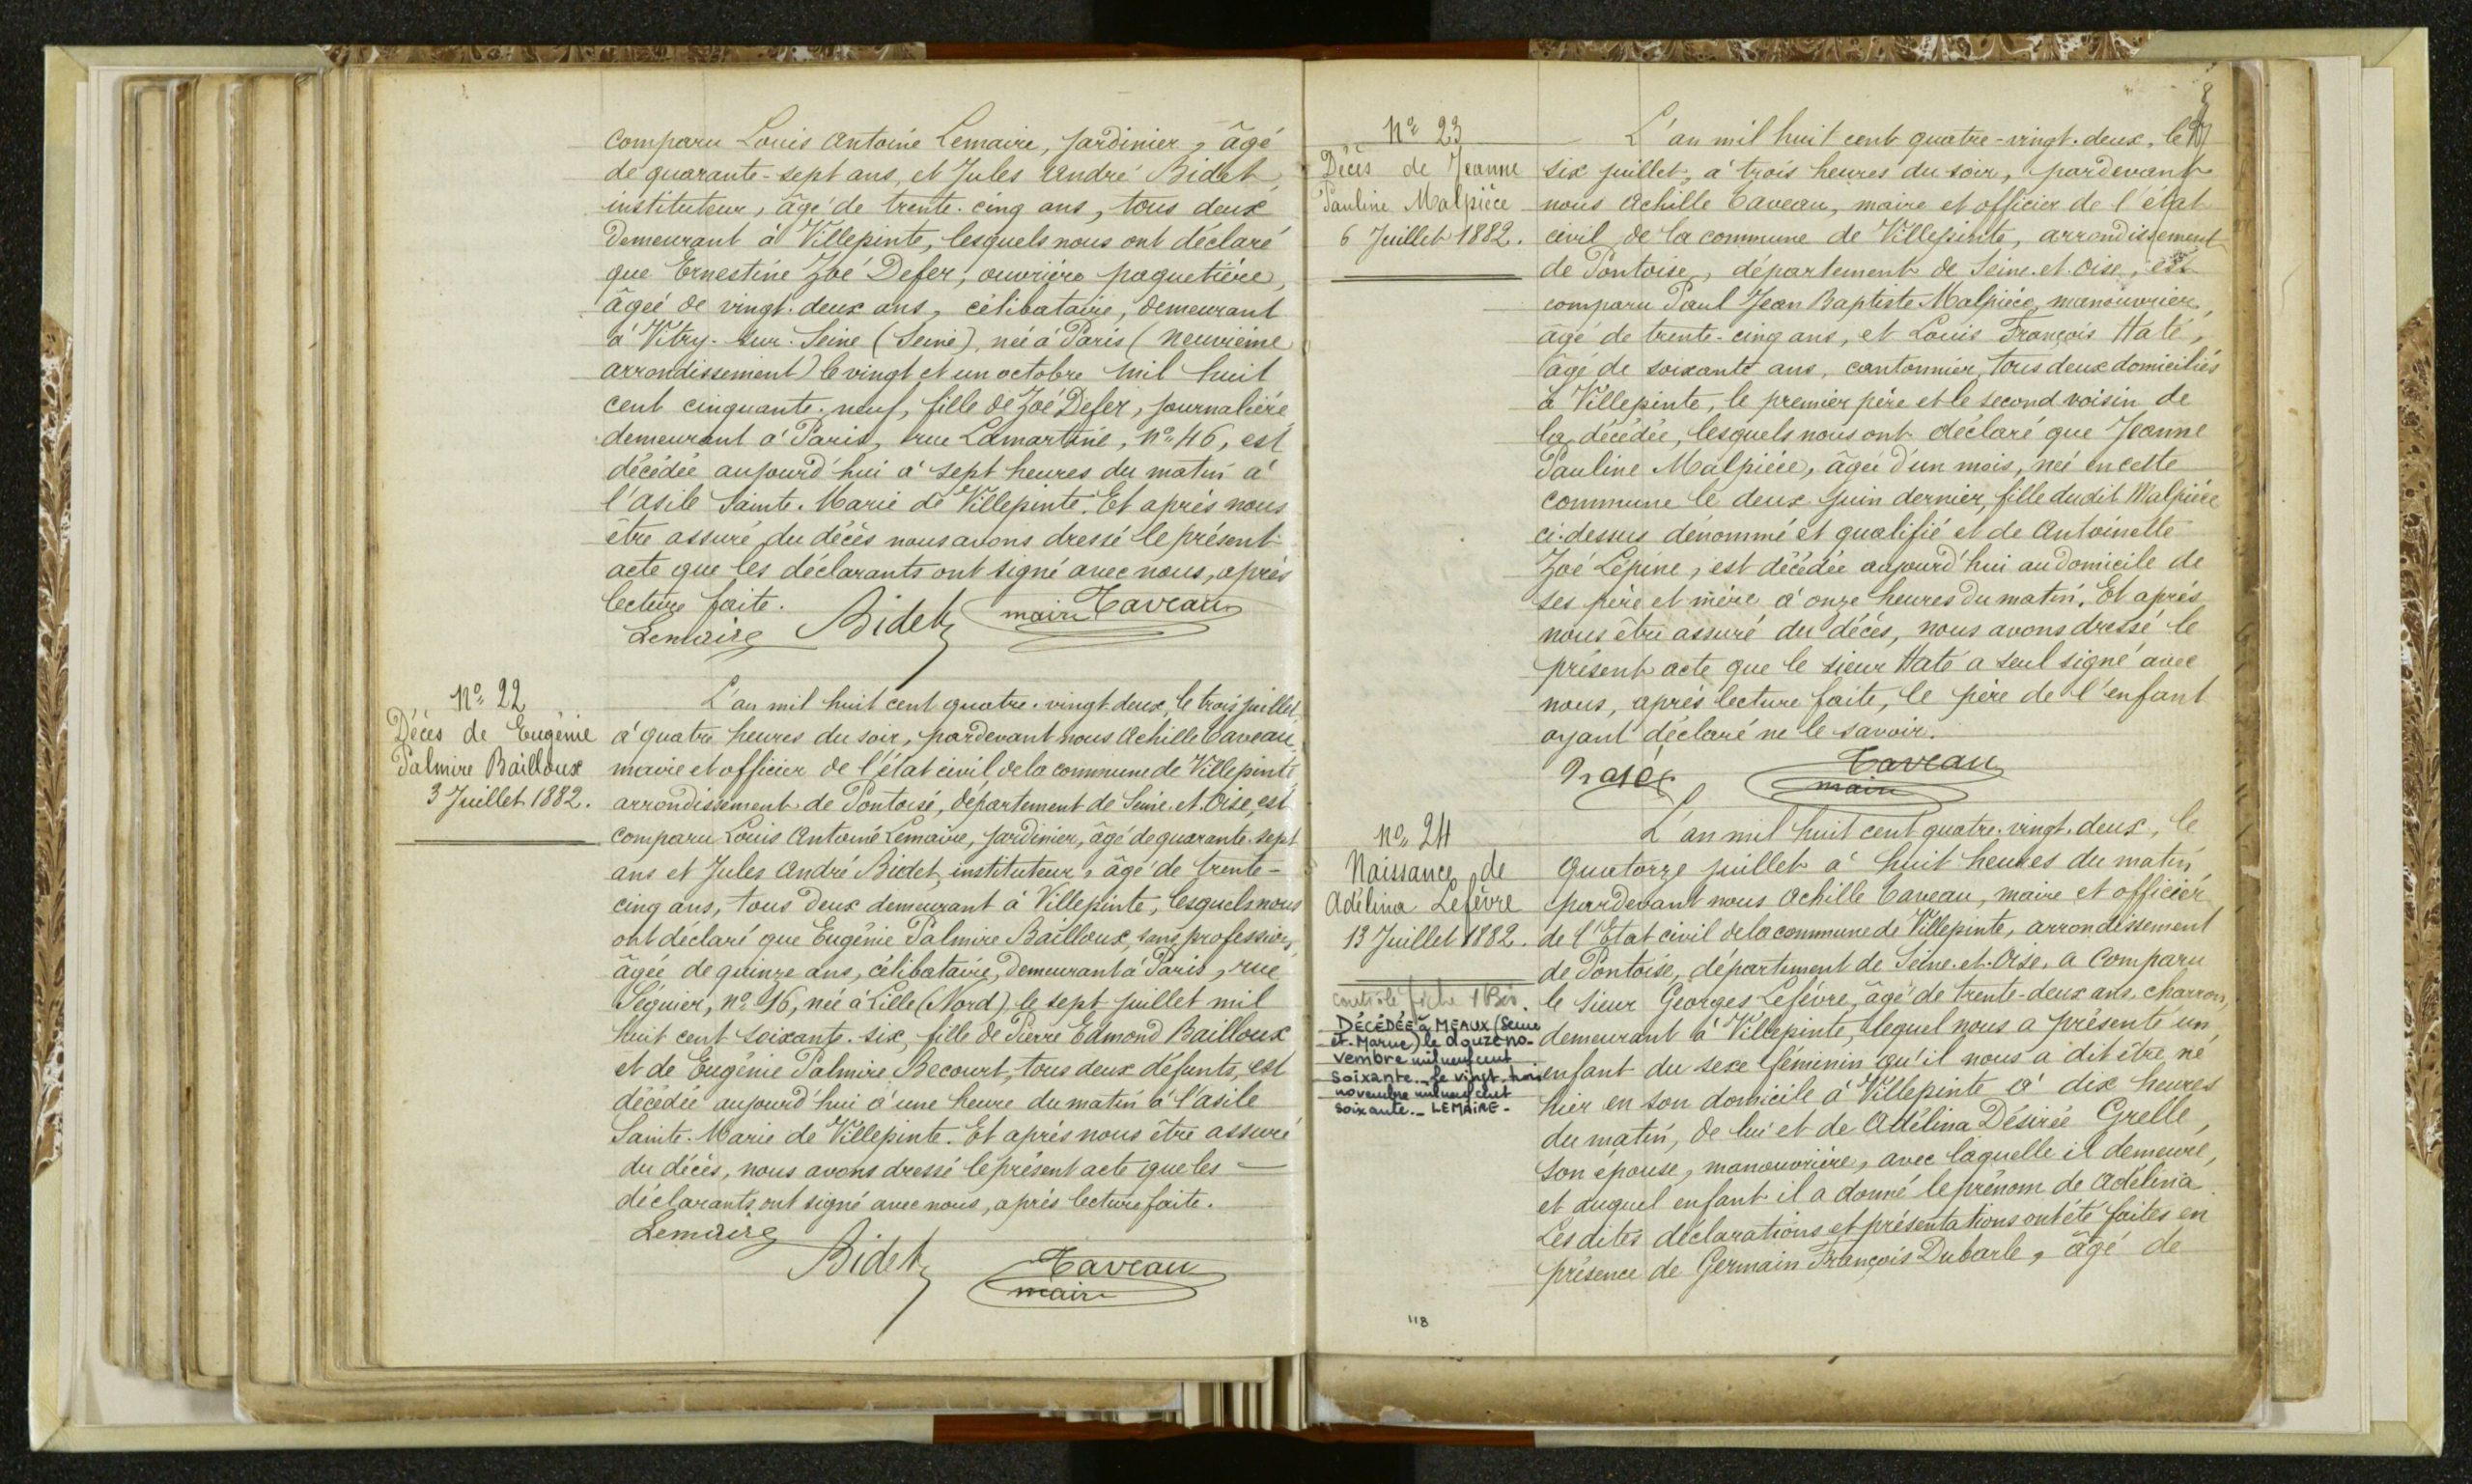 comparu Louis Antoine Lemaire, jardinier, âgé
de quarante-sept ans, et Jules André Bidet,
instituteur, âgé de trente-cinq ans, tous deux
demeurant à Villepinte, lesquels nous ont déclaré
que Ernestine Zoé Defer, ouvrière paquetière,
âgée de vingt-deux ans, célibataire, demeurant
à Vitry-sur-Seine (Seine), née à Paris (neuvième
arrondissement) le vingt et un octobre mil huit
cent cinquante-neuf, fille de Zoé Defer, journalière
demeurant à Paris, rue Lamartine, no 46, est
décédée aujourd'hui à sept heures du matin à
l'asile Sainte-Marie de Villepinte. Et après nous
être assuré du décès nous avons dressé le présent
acte que les déclarants ont signé avec nous, après
lecture faite.
Lemaire Bidet maire Caveau
No 22
Décès de Eugénie
Palmire Bailloux
3 Juillet 1882.
L'an mil huit cent quatre-vingt-deux, le trois juillet
à quatre heures du soir, pardevant nous Achille Caveau,
maire et officier de l'état civil de la commune de Villepinte
arrondissement de Pontoise, département de Seine-et-Oise, est
comparu Louis Antoine Lemaire, jardinier, âgé de quarante-sept
ans et Jules André Bidet, instituteur, âgé de trente-
cinq ans, tous deux demeurant à Villepinte, lesquels nous
ont déclaré que Eugénie Palmire Bailloux, sans profession,
âgée de quinze ans, célibataire, demeurant à Paris, rue
Séguier, no 16, née à Lille (Nord) le sept juillet mil
huit cent soixante-six, fille de Pierre Edmond Bailloux
et de Eugénie Palmire Becourt, tous deux défunts, est
décédée aujourd'hui à une heure du matin à l'asile
Sainte-Marie de Villepinte. Et après nous être assuré
du décès, nous avons dressé le présent acte que les
déclarants ont signé avec nous, après lecture faite.
Lemaire
Bidet Caveau
maire
No 23
Décès de Jeanne
Pauline Malpièce
6 Juillet 1882.
L'an mil huit cent quatre-vingt-deux, le
six juillet, à trois heures du soir, pardevant
nous Achille Caveau, maire et officier de l'état
civil de la commune de Villepinte, arrondissement
de Pontoise, département de Seine-et-Oise, est
comparu Paul Jean Baptiste Malpièce, manouvrier,
âgé de trente-cinq ans, et Louis François Haté,
âgé de soixante ans, cantonnier, tous deux domiciliés
à Villepinte, le premier père et le second voisin de
la décédée, lesquels nous ont déclaré que Jeanne
Pauline Malpièce, âgée d'un mois, née en cette
commune le deux juin dernier, fille dudit Malpièce
ci-dessus dénommé et qualifié et de Antoinette
Zoé Lépine, est décédée aujourd'hui au domicile de
ses père et mère à onze heures du matin. Et après
nous être assuré du décès, nous avons dressé le
présent acte que le sieur Haté a seul signé avec
nous, après lecture faite, le père de l'enfant
ayant déclaré ne le savoir.
Caveau
maire
No 24
Naissance de
Adélina Lefèvre
13 Juillet 1882.
L'an mil huit cent quatre-vingt-deux, le
quatorze juillet à huit heures du matin
pardevant nous Achille Caveau, maire et officier
de l'Etat civil de la commune de Villepinte, arrondissement
de Pontoise, département de Seine-et-Oise, a comparu
le sieur Georges Lefèvre, âgé de trente-deux ans, charron,
demeurant à Villepinte, lequel nous a présenté un
enfant du sexe féminin qu'il nous a dit être né
hier en son domicile à Villepinte à dix heures
du matin, de lui et de Adélina Désirée Grelle,
son épouse, manouvrière, avec laquelle il demeure,
et duquel enfant il a donné le prénom de Adélina.
Les dites déclarations et présentations ont été faites en
présence de Germain François Dubarle, âgé de
DÉCÉDÉE à MEAUX (Seine
et-Marne) le douze no-
vembre mil neuf cent
soixante._ Le vingt-trois
novembre mil neuf cent
soixante._ LEMAIRE-
118